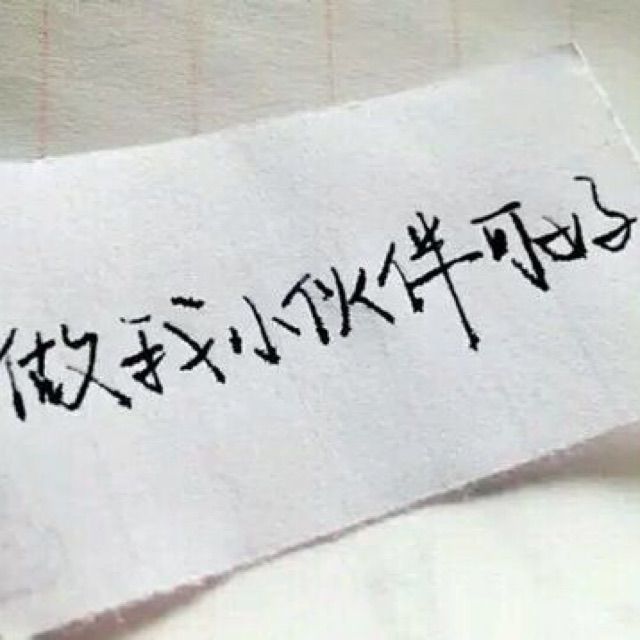 做我小伙伴可好